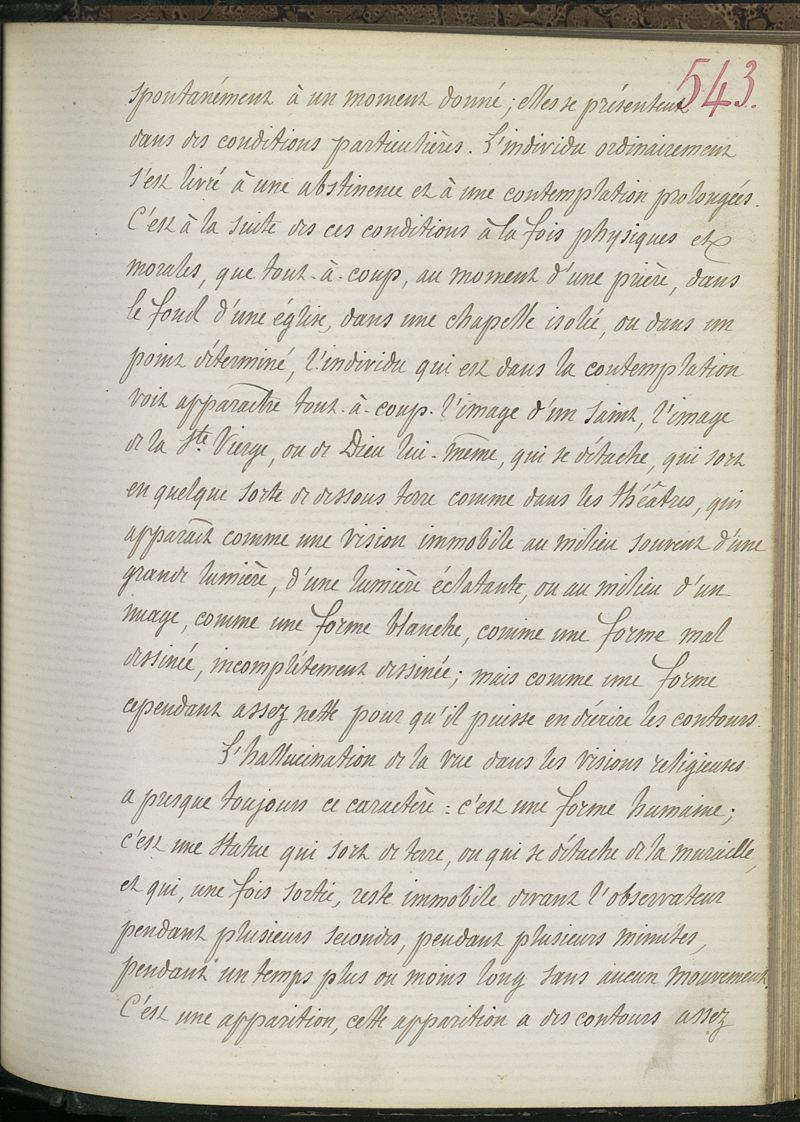 543.
spontanément à un moment donné; elles se présentent
dans des conditions particulières. L'individu ordinairement
s'est livré à une abstinence et à une contemplation prolongées.
C'est à la suite des ces conditions à la fois physiques et
morales, que tout-à-coup, au moment d'une prière, dans
le fond d'une église, dans une chapelle isolée, ou dans un
point déterminé, l'individu qui est dans la contemplation
voit apparaître tout-à-coup l'image d'un Saint, l'image
de la Ste Vierge, ou de Dieu lui-même, qui se détache, qui sort
en quelque sorte de dessous terre comme dans les théâtres, qui
apparaît comme une vision immobile au milieu souvent d'une
grande lumière, d'une lumière éclatante, ou au milieu d'un
nuage, comme une forme blanche, comme une forme mal
dessinée, incomplétement dessinée; mais comme une forme
cependant assez nette pour qu'il puisse en décrire les contours.
L'hallucination de la vue dans les visions religieuses
a presque toujours ce caractère: c'est une forme humaine;
c'est une statue qui sort de terre, ou qui se détache de la muraille,
et qui, une fois sortie, reste immobile devant l'observateur
pendant plusieurs secondes, pendant plusieurs minutes,
pendant un temps plus ou moins long sans aucun mouvement.
C'est une apparition, cette apparition a des contours assez